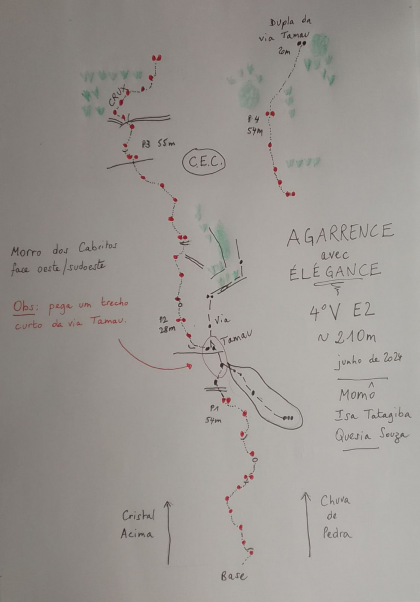 Dupla da
via Tamau
20m
P.4
54m
CRUX
P.3 55m
C.E.C.
AGARRENCE
avec
ÉLÉGANCE
4º V E2
~ 210m
junho de 2024
Momô
Isa Tatagiba
Quesia Souza
Morro dos Cabritos
face oeste/sudoeste
Obs: pega um trecho
curto da via Tamau.
P.2
28m
via
Tamau
P.1
54m
Cristal
Acima
Chuva
de
Pedra
Base